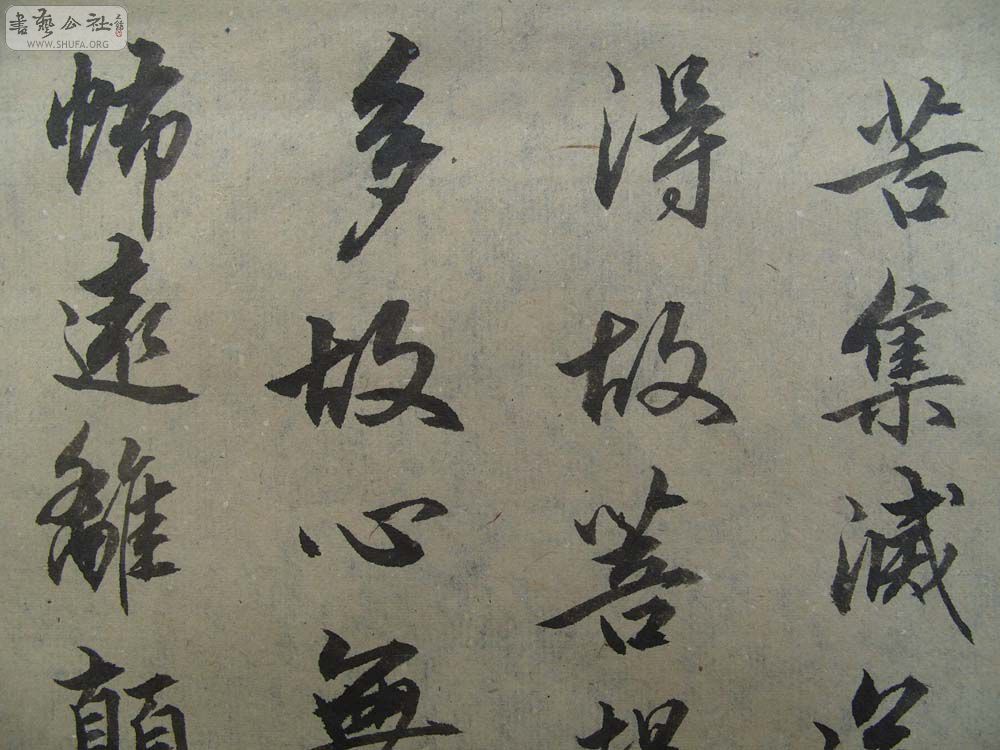 苦集滅道
得故菩提
多故心無
怖遠離顛
書藝公社
WWW.SHUFA.ORG